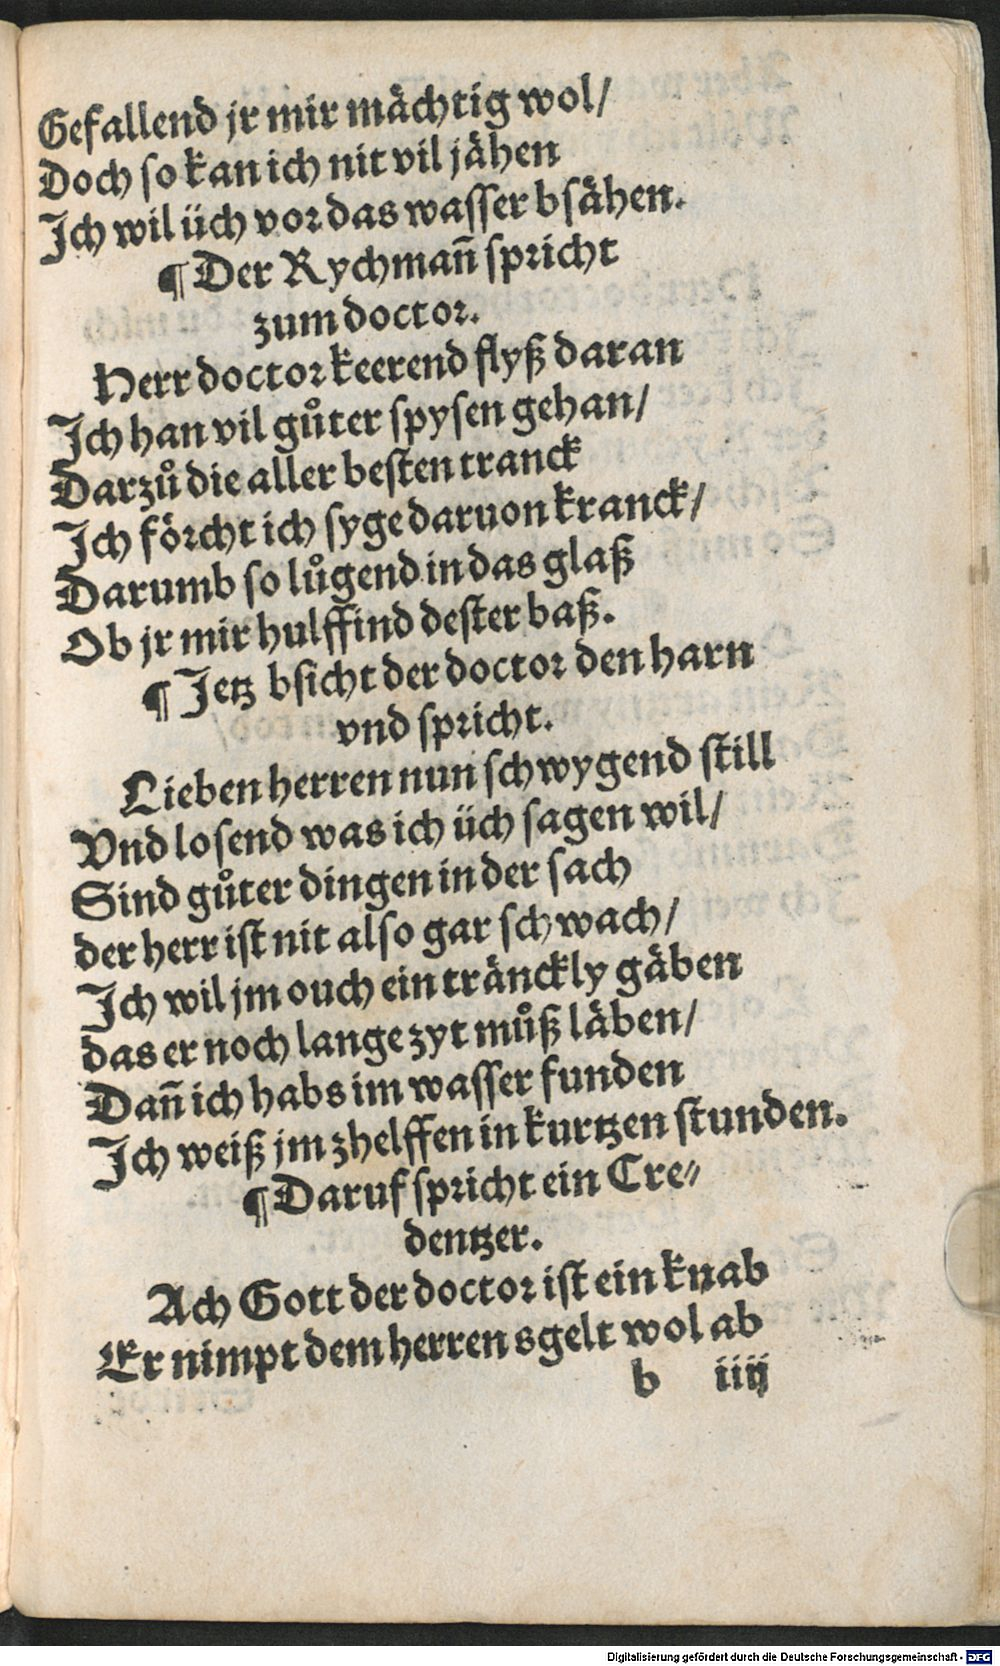 Gefallend jr mir mächtig wol/
Doch so kan ich nit vil jähen
Ich wil üch vor das wasser bsähen.
¶ Der Rychman̄ spricht
zum doctor.
Herr doctor keerend flyß daran
Ich han vil gůter spysen gehan/
Darzů die aller besten tranck
Ich förcht ich syge daruon kranck/
Darumb so lůgend in das glaß
Ob jr mir hulffind dester baß.
¶ Jetz bsicht der doctor den harn
vnd spricht.
Lieben herren nun schwygend still
Vnd losend was ich üch sagen wil/
Sind gůter dingen in der sach
der herr ist nit also gar schwach/
Ich wil jm ouch ein tränckly gäben
das er noch lange zyt můß läben/
Dan̄ ich habs im wasser funden
Ich weiß jm zhelffen in kurtzen stunden.
¶ Daruf spricht ein Cre⸗
dentzer.
Ach Gott der doctor ist ein knab
Er nimpt dem herren sgelt wol ab
b iiij
Digitalisierung gefördert durch die Deutsche Forschungsgemeinschaft - DFG